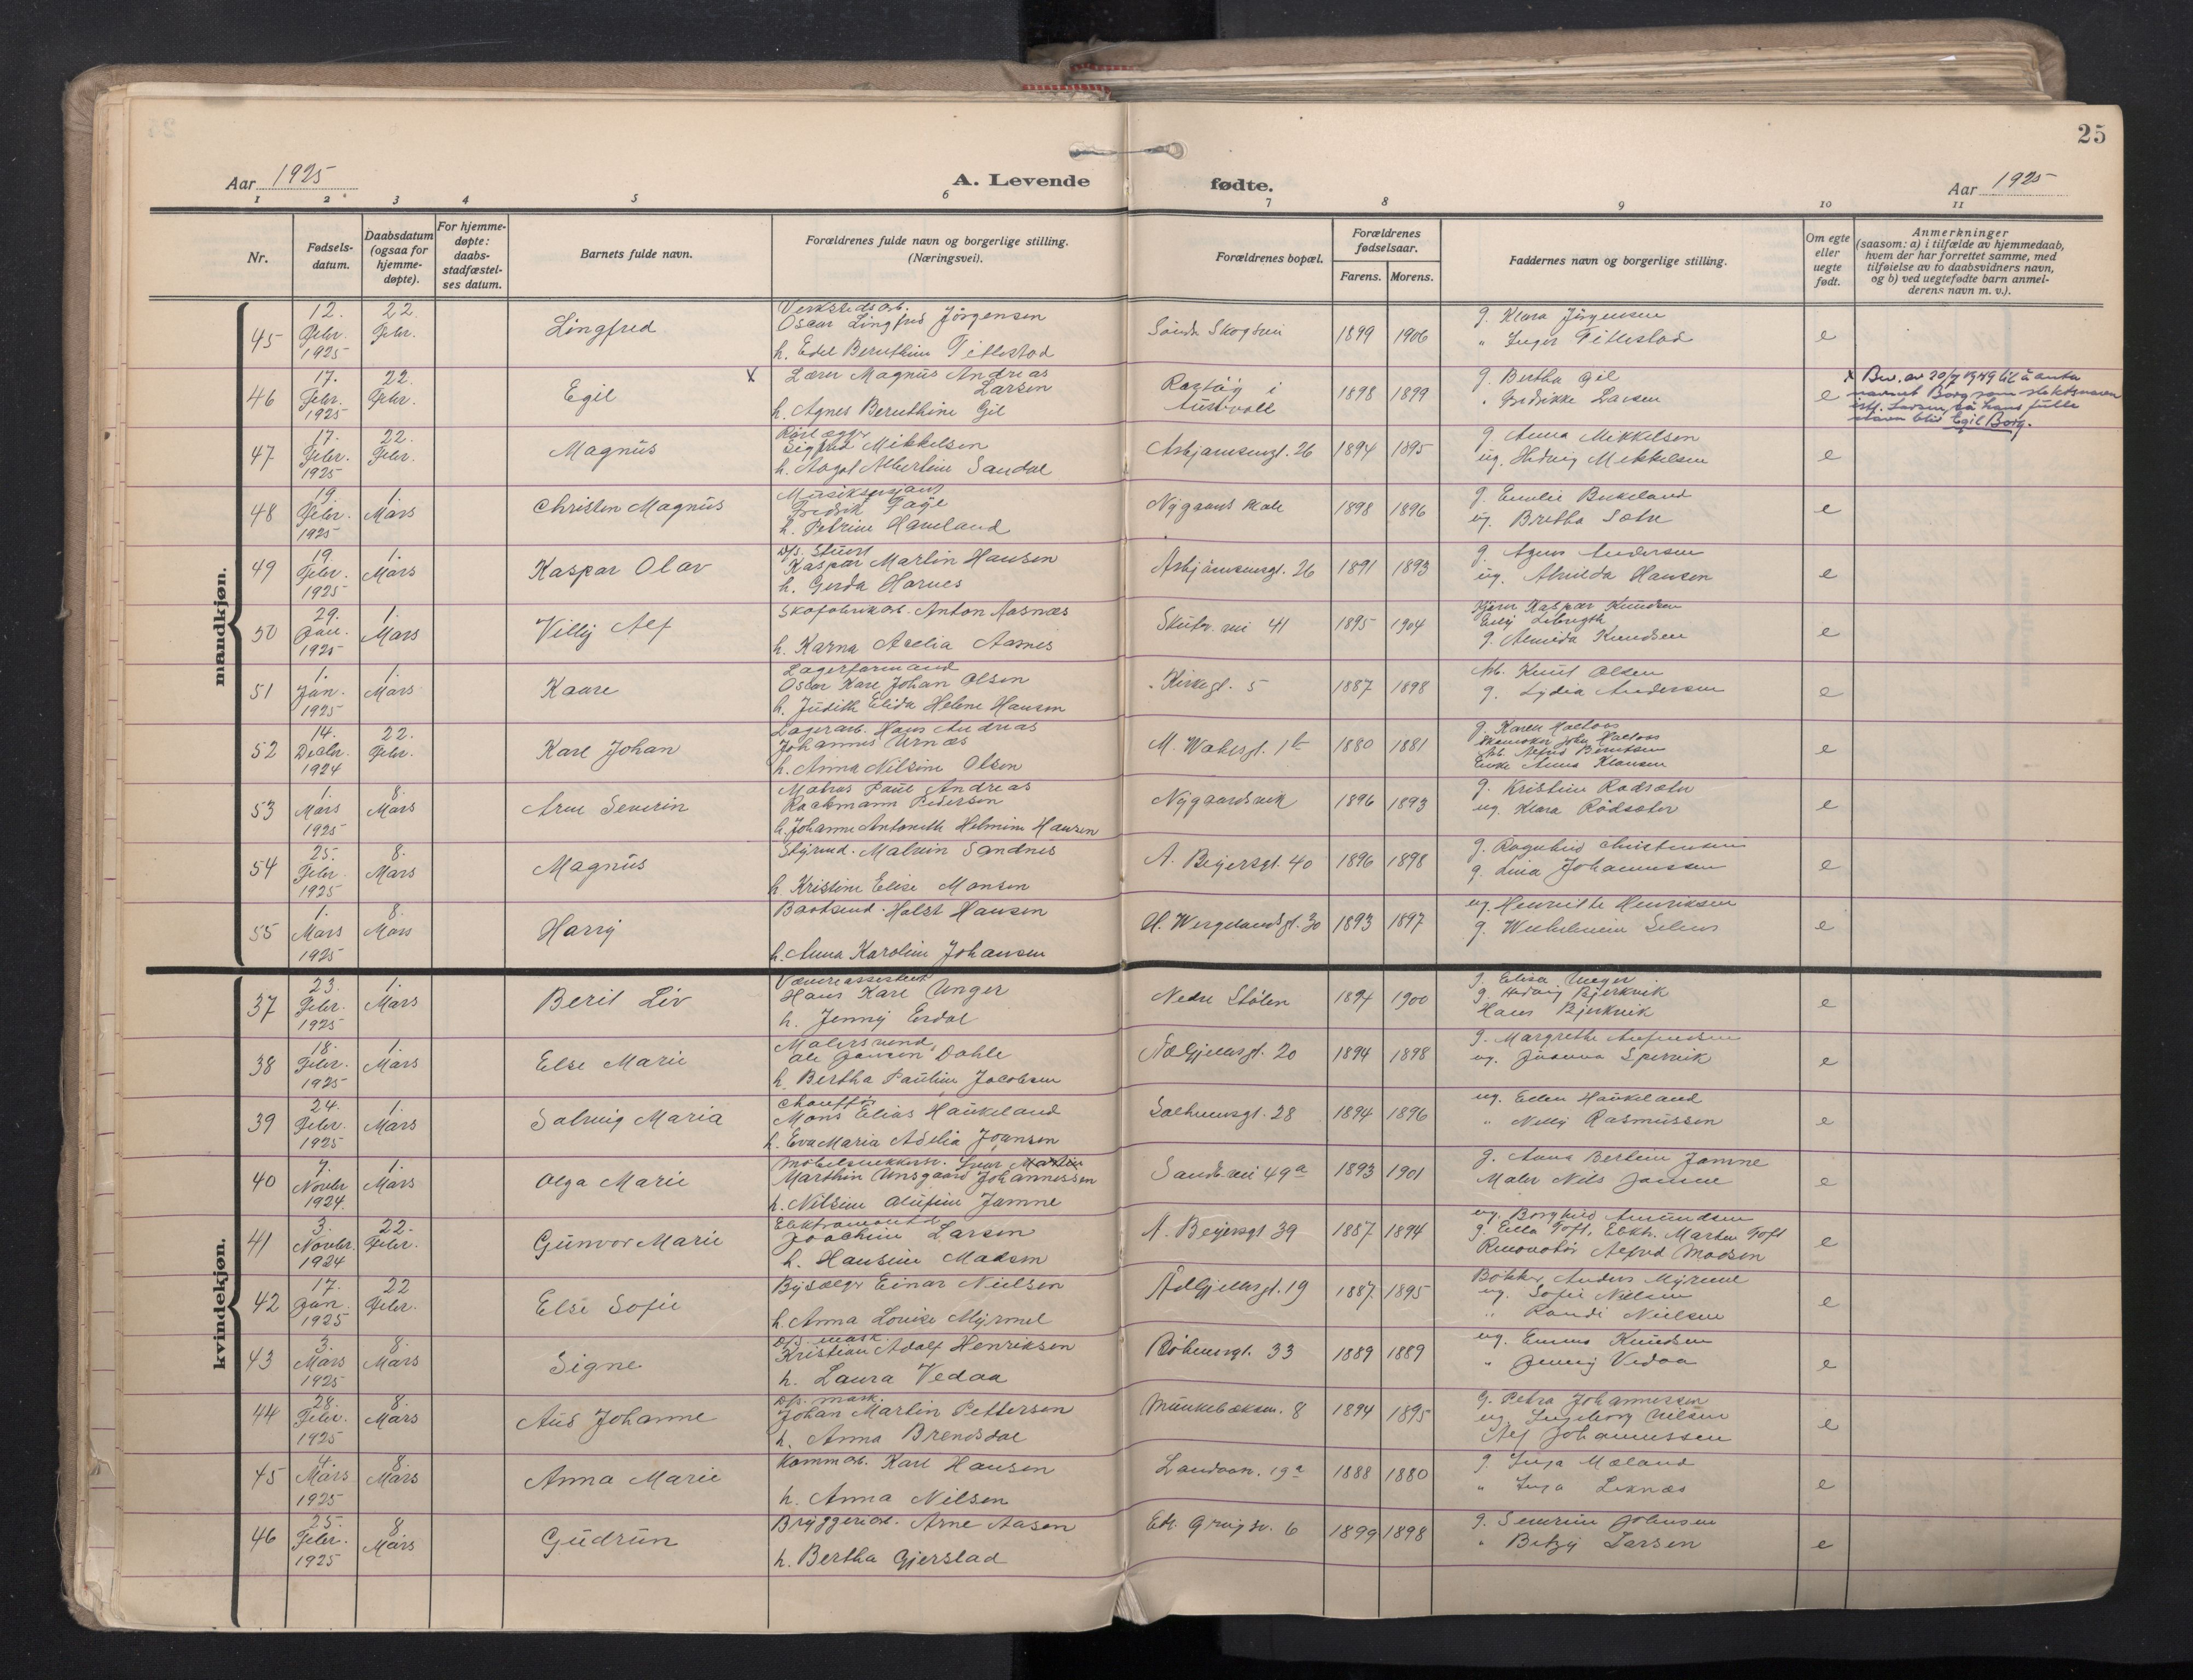 25
Aar 1925
A. Levende fødte.
Aar 1925
1 2 3 4 5 6 7 8 9 10 11
Nr.
Fødsels-
datum.
Daabsdatum
(ogsaa for
hjemme-
døpte).
For hjemme-
døpte:
daabs-
stadfæstel-
ses datum.
Barnets fulde navn.
Forældrenes fulde navn og borgerlige stilling.
(Næringsvei).
Forældrenes bopæl.
Forældrenes
fødselsaar.
Farens. Morens.
Faddernes navn og borgerlige stilling.
Om egte
eller
uegte
født.
Anmerkninger
(saasom: a) i tilfælde av hjemmedaab,
hvem der har forrettet samme, med
tilføielse av to daabsvidners navn,
og b) ved uegtefødte barn anmel-
derens navn m. v.).
mandkjøn.
45 12. Febr. 1925 22. Febr. Lingfred
Verkstedsarb.
Oscar Lingfred Jörgensen
h. Edel Beruthine Tittestad
1899 1906
g. Klara Jörgensen
" Inger Tittestad
e
46 17. Febr. 1925 22. Febr. Egil
x Lærer Magnus Andreas
Larsen
h. Agnes Beruthine Gil
i
Austvoll
1898 1899
g. Bertha Gil
" Fredrikke Larsen
e
x Bev. av 20/7 1949 til å anta
navnet Borg som slektsnavn
istf. Larsen, så hans fulle
navn blir Egil Borg.
47 17. Febr. 1925 22. Febr. Magnus
Sigfred Mikkelsen
h. Aagot Albertine Sandal
Asbjørnsensgt. 26
1894 1895
g. Anna Mikkelsen
ug. Hedvig Mikkelsen
e
48 19. Febr. 1925 1. Mars Christen Magnus
Fredrik
h. Petrine Haveland
Nygaards
1898 1896
g. Emilie Birkeland
ug. Bertha
e
49 19. Febr. 1925 1. Mars Kaspar Olav
D/s. Stuert
Kaspar Martin Hansen
h. Gerda Harnes
Asbjørnsensgt. 26
1891 1893
g. Agnes Andersen
ug. Alvilda Hansen
e
50 29. Jan. 1925 1. Mars Villy Alf
Skofabrikarb. Anton Aasnæs
h. Karna Aselia Aasnes
Skuter. vei 41
1895 1904
Kaspar Knudsen
g. Almida Knudsen
e
51 1. Jan. 1925 1. Mars Kaare
Lagerformand
Oscar Karl Johan Olsen
h. Judith Elida Helene Hansen
Kirkegt. 5
1887 1898
Arb. Knut Olsen
g. Lydia Andersen
e
52 14. Decbr. 1924 22. Febr. Karl Johan
Lagerarb. Hans Andreas
Johannes Urnæs
h. Anna Nilsine Olsen
1880 1881
g. Karen
Arb. Alfred Berntsen
Enke Anna Klausen
e
53 1. Mars 1925 8. Mars Arne Severin
Matros Paul Andreas
Rackmann Pedersen
h. Johanne Antonette Helmine Hansen
Nygaardsvik
1896 1893
g. Kristine Rödseter
ug. Klara Rödseter
e
54 25. Febr. 1925 8. Mars Magnus
Styrmd. Malvin Sandnes
h. Kristine Elise Monsen
A. Beyersgt. 40
1896 1898
g. Ragnhild Christensen
g. Lina Johannessen
e
55 1. Mars 1925 8. Mars Harry
Baatsmd. Halst Hansen
h. Anna Karoline Johansen
H. Wergelandsgt. 30
1893 1897
ug. Henriette Henriksen
g. Wilhelmine
e
kvindekjøn.
37 23. Febr. 1925 1. Mars Berit Liv
Hans Karl Unger
h. Jenny Erdal
Nedre Stölen
1894 1900
g. Elisa Unger
g. Hedvig Bjerkvik
Hans Bjerkvik
e
38 18. Febr. 1925 1. Mars Else Marie
Malersvend
Ole Jansen Dahle
h. Bertha Pauline Jacobsen
Ad. Gjellersgt. 20
1894 1898
g. Margrethe
ug. Johanna
e
39 24. Febr. 1925 1. Mars Solveig Maria
Chauffør
Mons Elias Haukeland
h. Eva Maria Adelia Joansen
Solheimsgt. 28
1894 1896
ug. Ellen Haukeland
" Nelly Rasmussen
e
40 7. Novbr. 1924. 1. Mars Olga Marie
Møbelsnekkersv.
Marthin Unsgaard Johannessen
h. Nilsine Olufine Jamne
Sandv. vei 49a
1893 1901
g. Anna Bertine Jamne
Maler Nils Jamne
e
41 3. Novbr. 1924 22. Febr. Gunvor Marie
Elektromontør
Joachim Larsen
h. Hansine Madsen
A. Beyersgt 39
1887 1894
ug. Borghild Amundsen
g. Ella Toft, Elektr. Martin Toft
Renovatør Alfred Madsen
e
42 17. Jan. 1925 22 Febr. Else Sofie
Bysælger Einar Nielsen
h. Anna Louise Myrmel
Ad. Gjellersgt. 19
1887 1895
Bökker Anders Myrmel
ug. Sofie Nielsen
" Randi Nielsen
e
43 3. Mars 1925 8. Mars Signe
D/s. mask.
Kristian Adolf Henriksen
h. Laura Vedaa
Böhmersgt. 33
1889 1889
ug. Emma Knudsen
" Jenny Vedaa
e
44 28. Febr. 1925 8. Mars Aus Johanne
D/s. mask.
Johan Martin Pettersen
h. Anna Brendsdal
Munkebæksv. 8
1894 1895
g. Petra Johannessen
ug. Ingeborg Nilsen
Alf Johannessen
e
45 4. Mars 1925 8. Mars Anna Marie
Komm. arb. Karl Hansen
h. Anna Nilsen
Landaan. 19a
1888 1880
g. Inga Mæland
" Inga Leknæs
e
46 25. Febr. 1925 8. Mars Gudrun
Bryggeriarb. Arne Aasen
h. Bertha Gjerstad
Edv. Griegsv. 6
1899 1898
g. Severine Johnsen
" Betzy Larsen
e